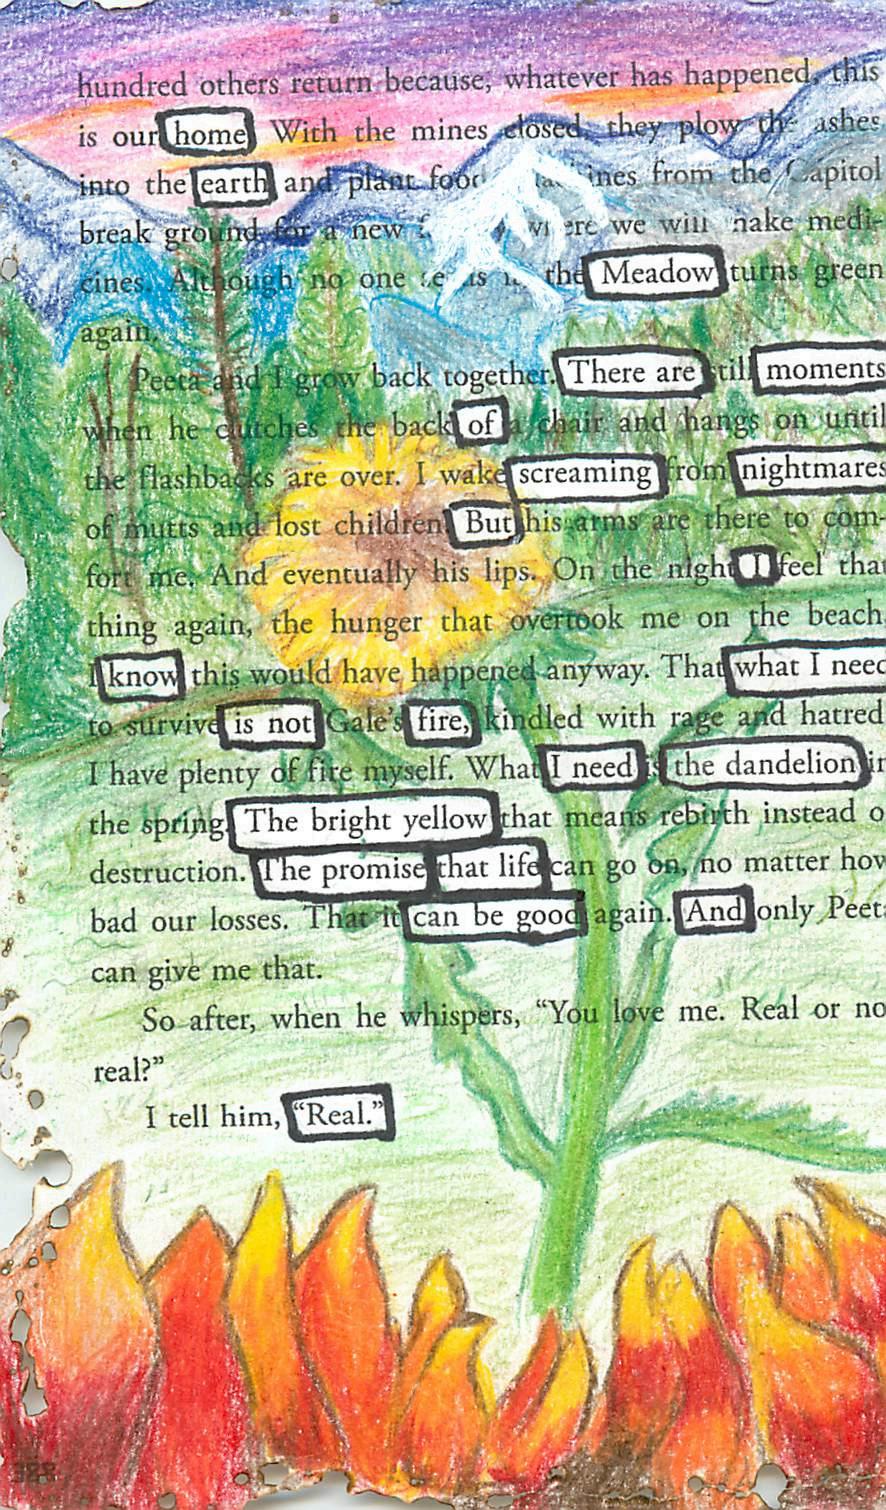 hundred others return because, whatever has happened, this
is our home. With the mines closed, they plow the ashes
into the earth and plant food from the Capitol
break ground for a new we will make medi-
cines. Although no one the Meadow turns green
again.
Peeta and I grow back together. There are still moments
when he clutches the back of a chair and hangs on until
the flashbacks are over. I wake screaming from nightmares
of mutts and lost children. But his arms are there to com-
fort me. And eventually his lips. On the night I feel that
thing again, the hunger that overtook me on the beach,
I know this would have happened anyway. That what I need
to survive is not Gale's fire, kindled with rage and hatred
I have plenty of fire myself. What I need is the dandelion in
the spring. The bright yellow that means rebirth instead o
destruction. The promise that life can go on, no matter how
bad our losses. That it can be good again. And only Peeta
can give me that.
So after, when he whispers, “You love me. Real or no
real?”
I tell him, “Real.”
388